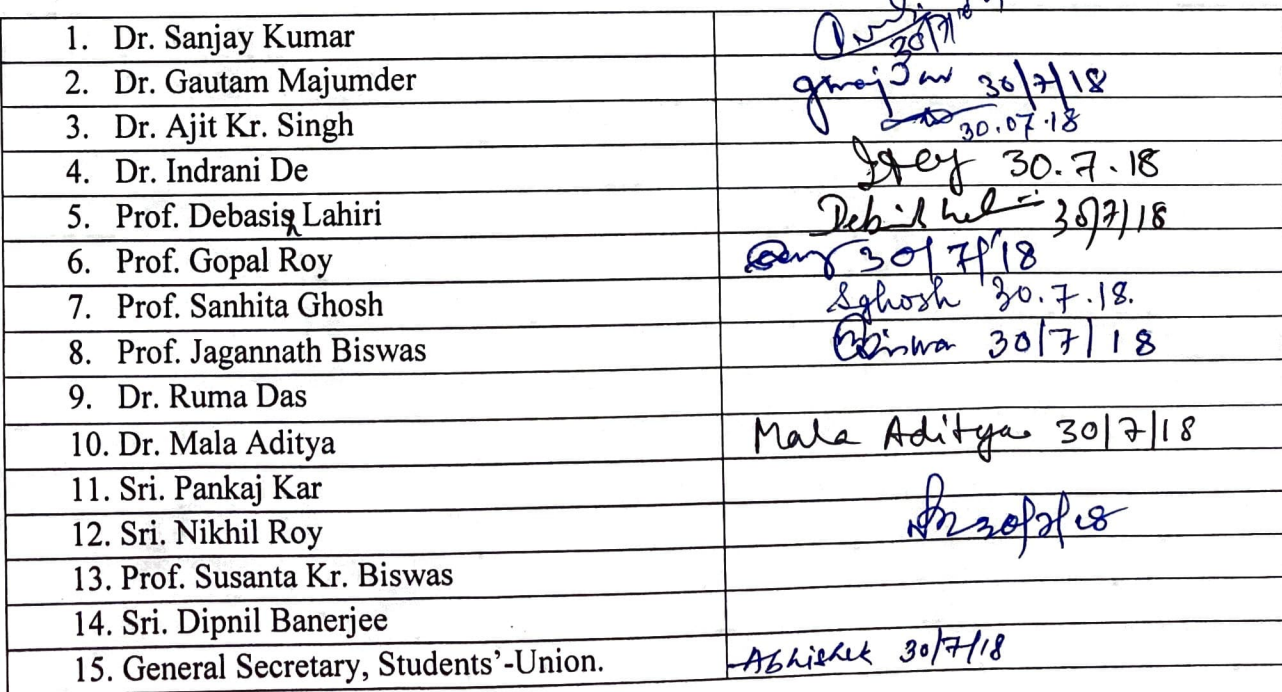 1. Dr. Sanjay Kumar 30/7/18
2. Dr. Gautam Majumder 30/7/18
3. Dr. Ajit Kr. Singh 30.07.18
4. Dr. Indrani De 30.7.18
5. Prof. Debasis Lahiri 30/7/18
6. Prof. Gopal Roy 30/7/18
7. Prof. Sanhita Ghosh Sghosh 30.7.18.
8. Prof. Jagannath Biswas 30/7/18
9. Dr. Ruma Das
10. Dr. Mala Aditya Mala Aditya 30/7/18
11. Sri. Pankaj Kar
12. Sri. Nikhil Roy 30/7/18
13. Prof. Susanta Kr. Biswas
14. Sri. Dipnil Banerjee
15. General Secretary, Students'-Union. Abhishek 30/7/18